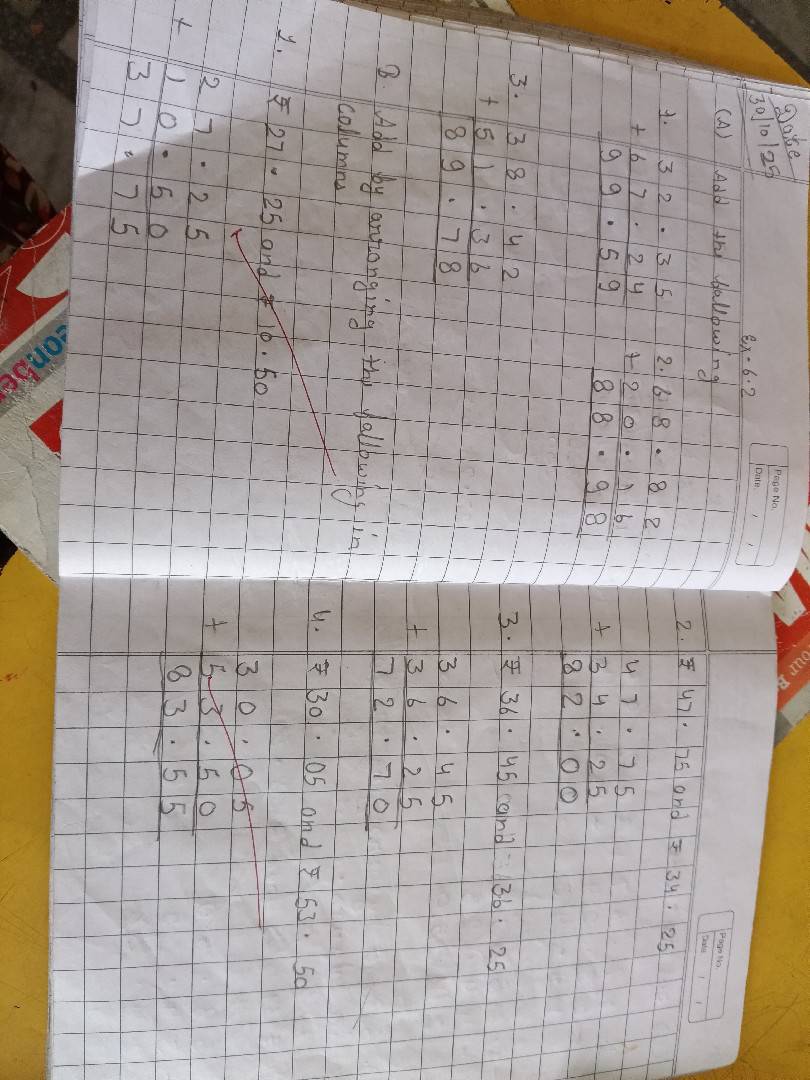 Date
30/10/25
Ex. 6.2
Page No.
Date / /
(A) Add the following
1. 32.35
+ 67.24
99.59
2. 68.82
+ 20.16
88.98
3. 38.42
+ 51.36
89.78
B. Add by arranging the following in
columns.
1. ₹ 27.25 and ₹ 10.50
27.25
+ 10.50
37.75
Page No.
Date / /
2. ₹ 47.75 and ₹ 34.25
47.75
+ 34.25
82.00
3. ₹ 36.45 and 36.25
36.45
+ 36.25
72.70
4. ₹ 30.05 and ₹ 53.50
30.05
+ 53.50
83.55